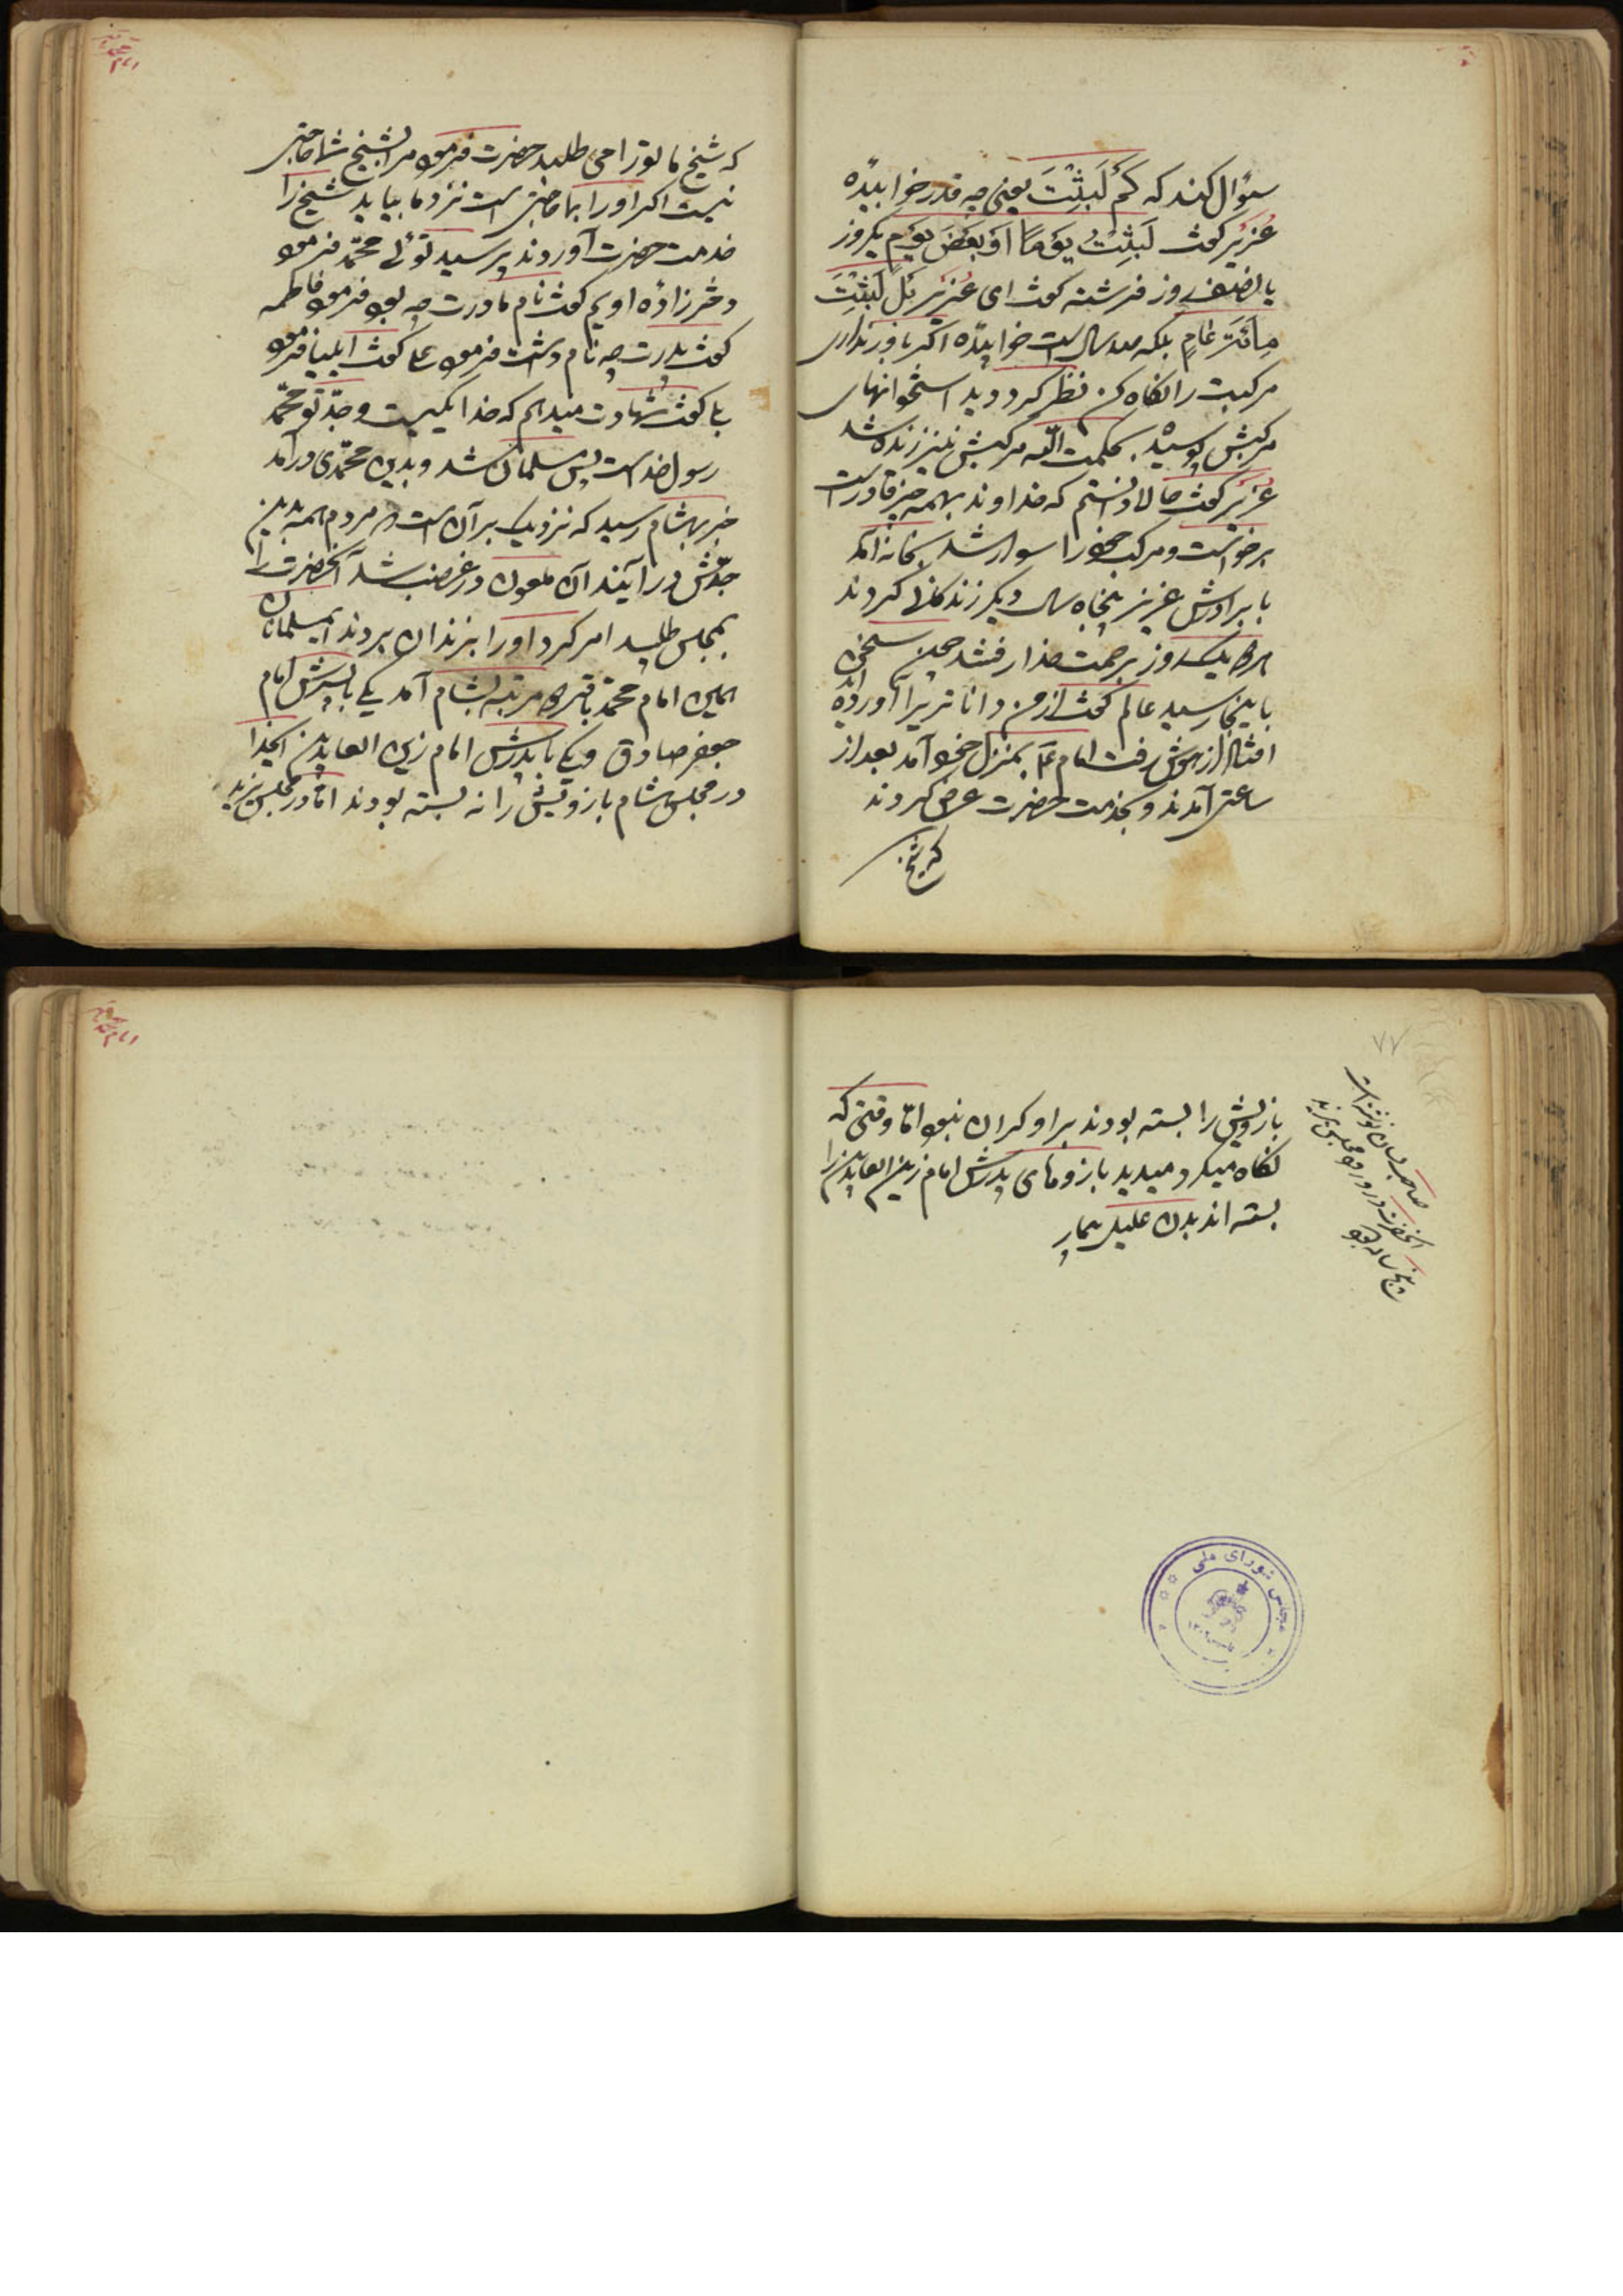 سؤال کند که کَمْ لَبِثْتَ یعنی چه قدر خوابیدهٔ
عُزَیر کفت لَبِثْتُ یَوْمًا اَوْ بَعْضَ یَوْمٍ یکروز
یا نصف روز فرشته کفت ای عُزَیر بَلْ لَبِثْتَ
مِائَةَ عٰامٍ بلکه صد سال است خوابیدهٔ اکر باور نداری
مرکبت را نکاه کن نظر کرد و دید استخوانهای
مرکبش پوسیده بحکمت الله مرکبش نیز زنده شد
عُزَیر کفت حالا دانستم که خداوند بهمه چیز قادر است
برخواست و مرکب خود را سوار شد بخانه آمد
با برادرش عزیز پنجاه سال دیکر زندکانی کردند
هر دو یک روز برحمت خدا رفتند چون سخن
باینجا رسید عالم کفت از من داناتر برا آورده اند
افتاد از هوش رفت امام ع بمنزل خود آمد بعد از
ساعتی آمدند و بخدمت حضرت عرض کردند
که شیخ
که شیخ ما تو را می طلبد حضرت فرمود مرا بشیخ شما حاجتی
نیست اکر او را بما حاجتی است نزد ما بیاید شیخ را
خدمت حضرت آوردند پرسید توئی محمّد فرمود
دختر زادهٔ اویم کفت نام مادرت چه بود فرمود فاطمه
کفت پدرت چه نام داشت فرمود علی کفت ایلیا فرمود
بلی کفت شهادت میدهم که خدا یکیست و جدّ تو محمّد
رسول خداست پس مسلمان شد و بدین محمّدی درآمد
خبر بهشام رسید که نزدیک بر آن است که مردم همه بدین
جدّش درآیند آن ملعون در غضب شد آنحضرت را
بمجلس طلبید امر کرد او را بزندان بردند ایمسلمانان
همین امام محمّد باقر دو مرتبه بشام آمد یکی با پسرش امام
جعفر صادق و یکی با پدرش امام زین العابدین اینجا
در مجلس هشام بازویش را نه بسته بودند امّا در مجلس یزید
۷۷
بازویش را بسته بودند بر او کران نبود امّا وقتی که
نکاه میکرد میدید بازوهای پدرش امام زین العابدین را
بسته اند بدن علیل بیمار
آنحضرت در ورود مجلس یزید
پنج ساله بود
مجلس شورای ملی